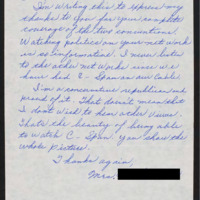 I'm writing this to express my
thanks to you for your complete
coverage of the two conventions.
Watching politics on your network
is so informative. I never listen
to the other networks since we
have had C-Span on our Cable.
I'm a conservative republican and
proud of it. That doesn't mean that
I don't want to hear other views.
That's the beauty of being able
to watch C-Span. you show the
whole picture.
Thanks again,
Mrs.